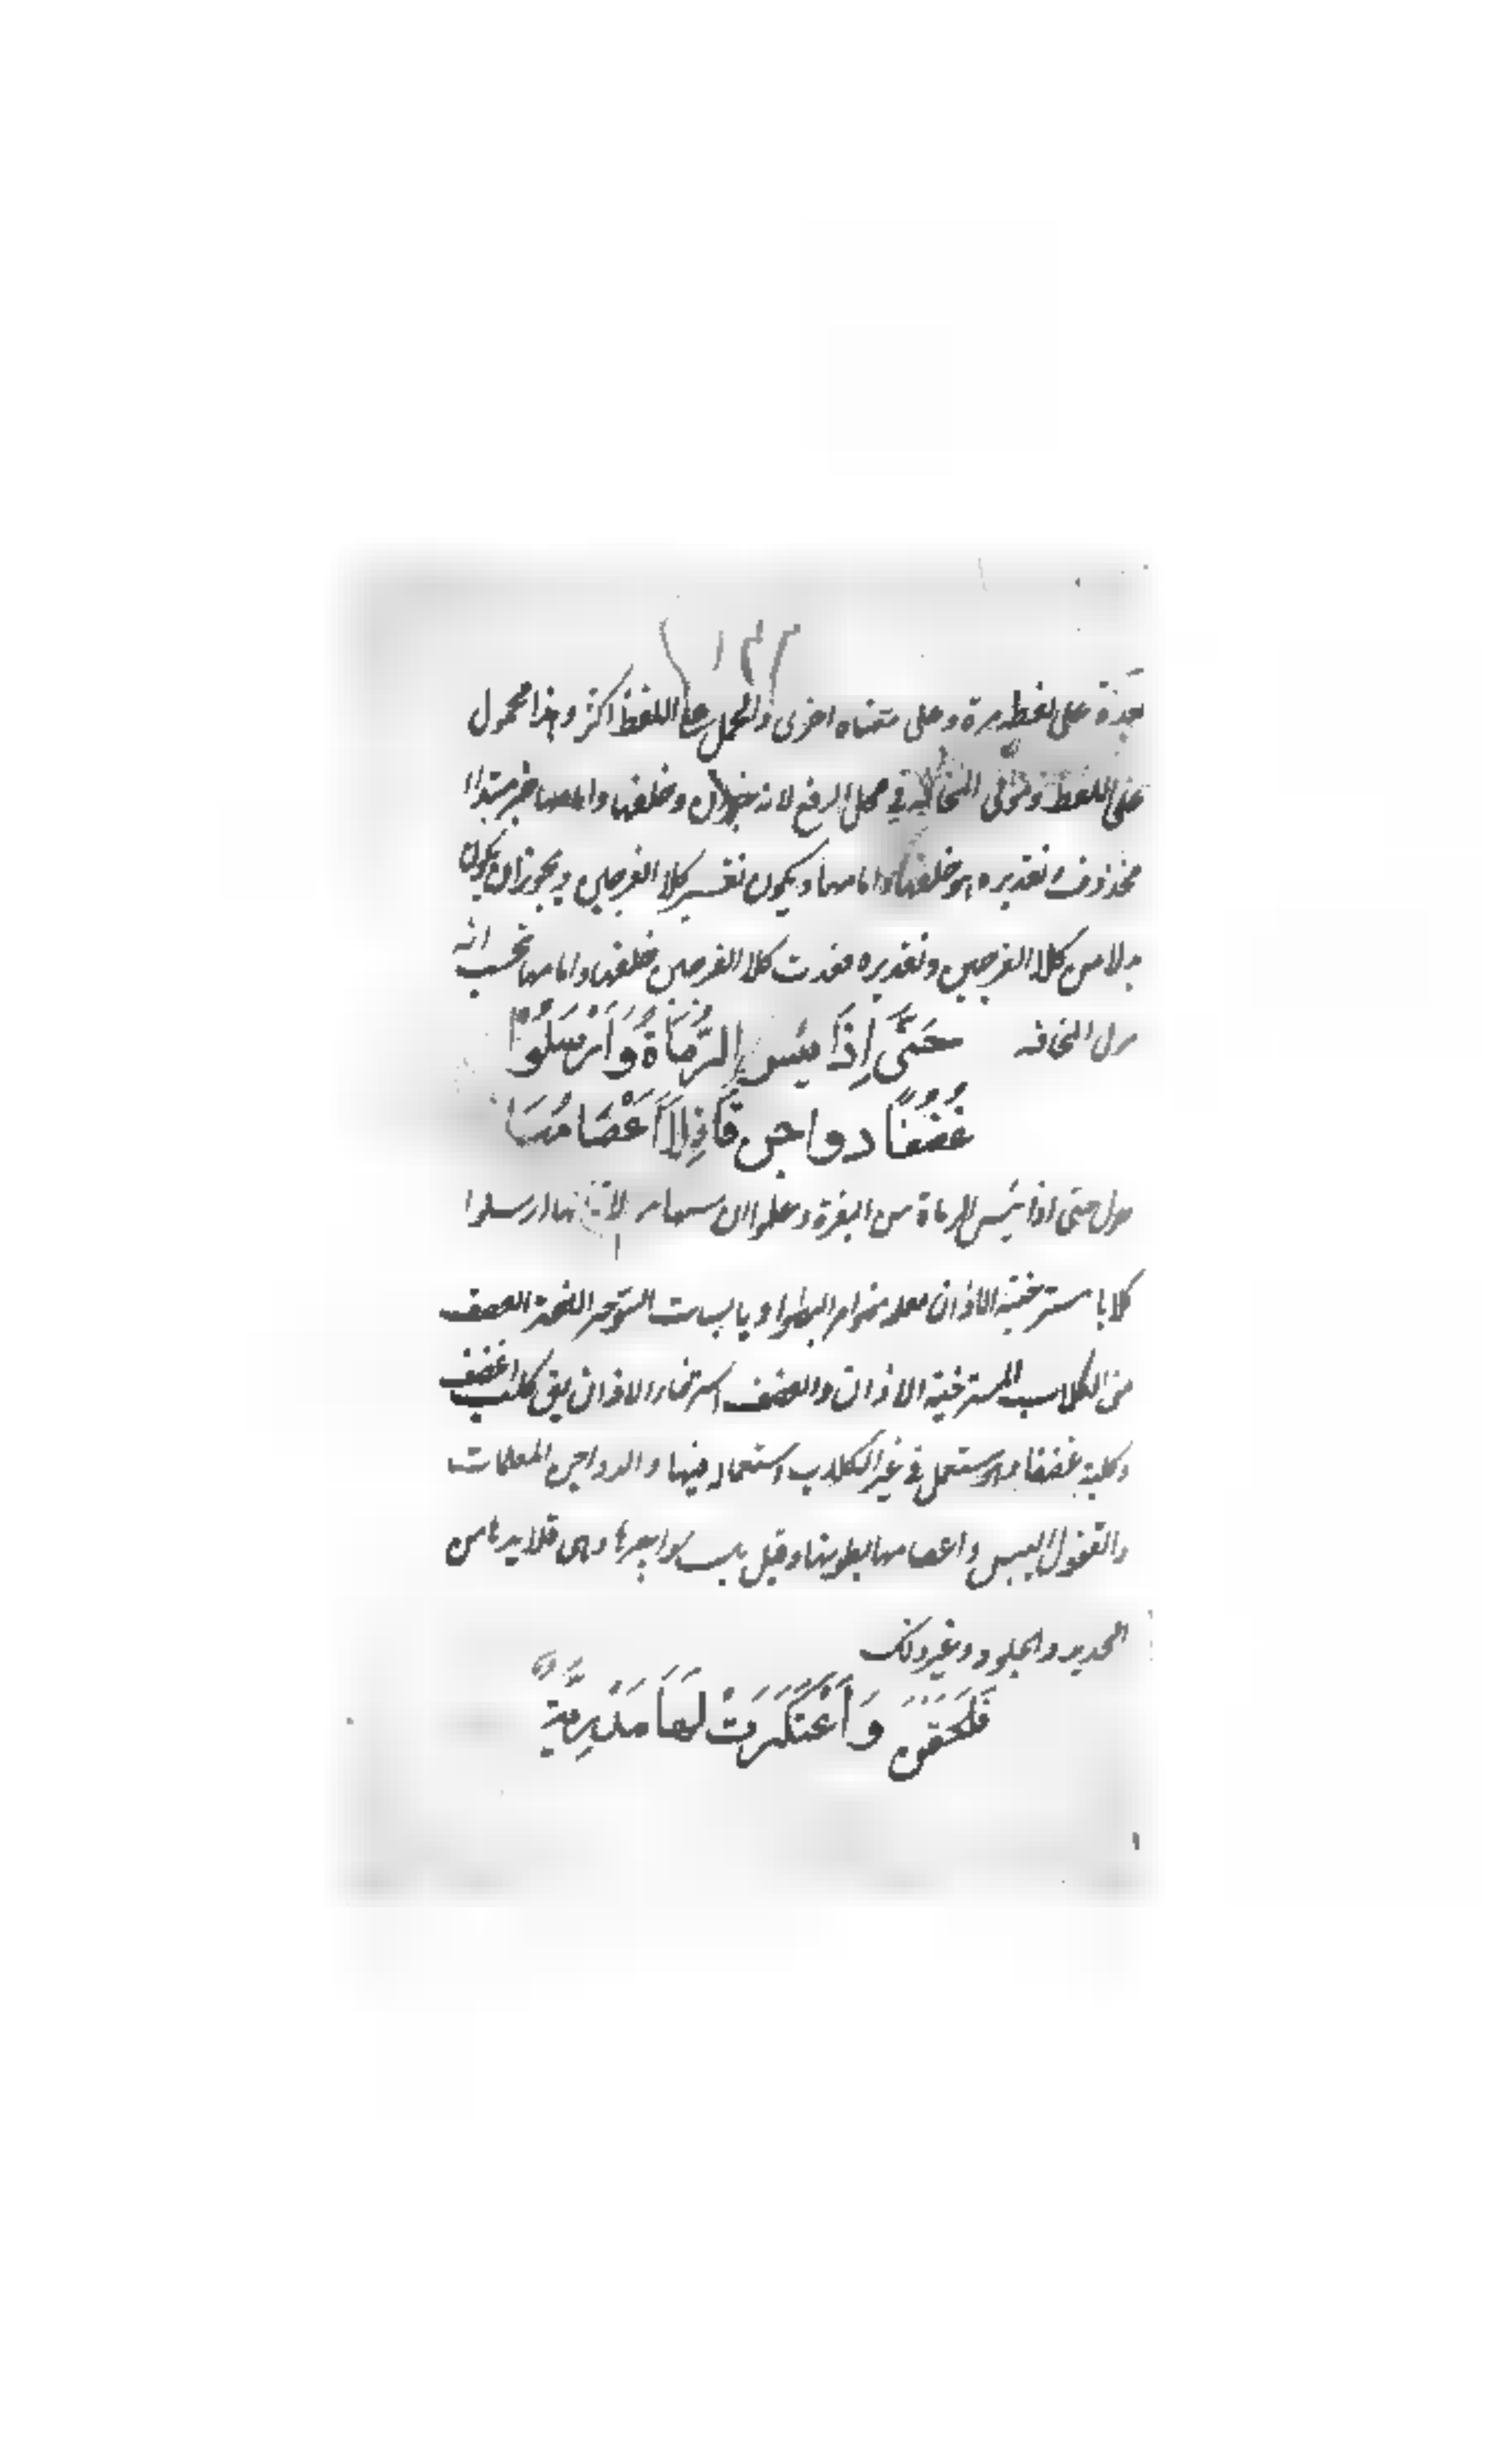 بعده على لفظه مرة وعلى معناه اخرى والحمل على اللفظ اكثر وهذا محمول
على اللفظ ومولى المخافة في محل الرفع لانه خبر ان وخلفها وامامها خبر مبتدا
محذوف تقديره هو خلفها وامامها ويكون تفسير كلا الفرجين ويجوز ان يكون
بدلا من كلا الفرجين وتقديره فغدت كلا الفرجين خلفها وامامها تحسب انه
مولى المخافه
حَتَّى إِذَا يَئِسَ الرُّمَاةُ وَأَرْسَلُوا
غُضْفًا دواجن قَافِلاً أَعْصَامُهَا
يقول حتى اذا يئس الرماة من البقرة وعلموا ان سهامهم لا تنالها ارسلوا
كلابا مسترخية الاذان معلمة ضوامر البطون او يابسات السواجير الغضف
من الكلاب المسترخية الاذان والغضف استرخاء الاذان يق كلب اغضف
وكلبة غضفا وهو مستعمل في غير الكلاب استعماله فيها والدواجن المعلمات
والقفول اليبس واعصامها بطونها وقيل بل سواجيرها وهي قلايدها من
الحديد والجلود وغير ذلك
فَلَحِقْنَ وَاعْتَكَرَتْ لَهَا مَدَرِيَّةٌ